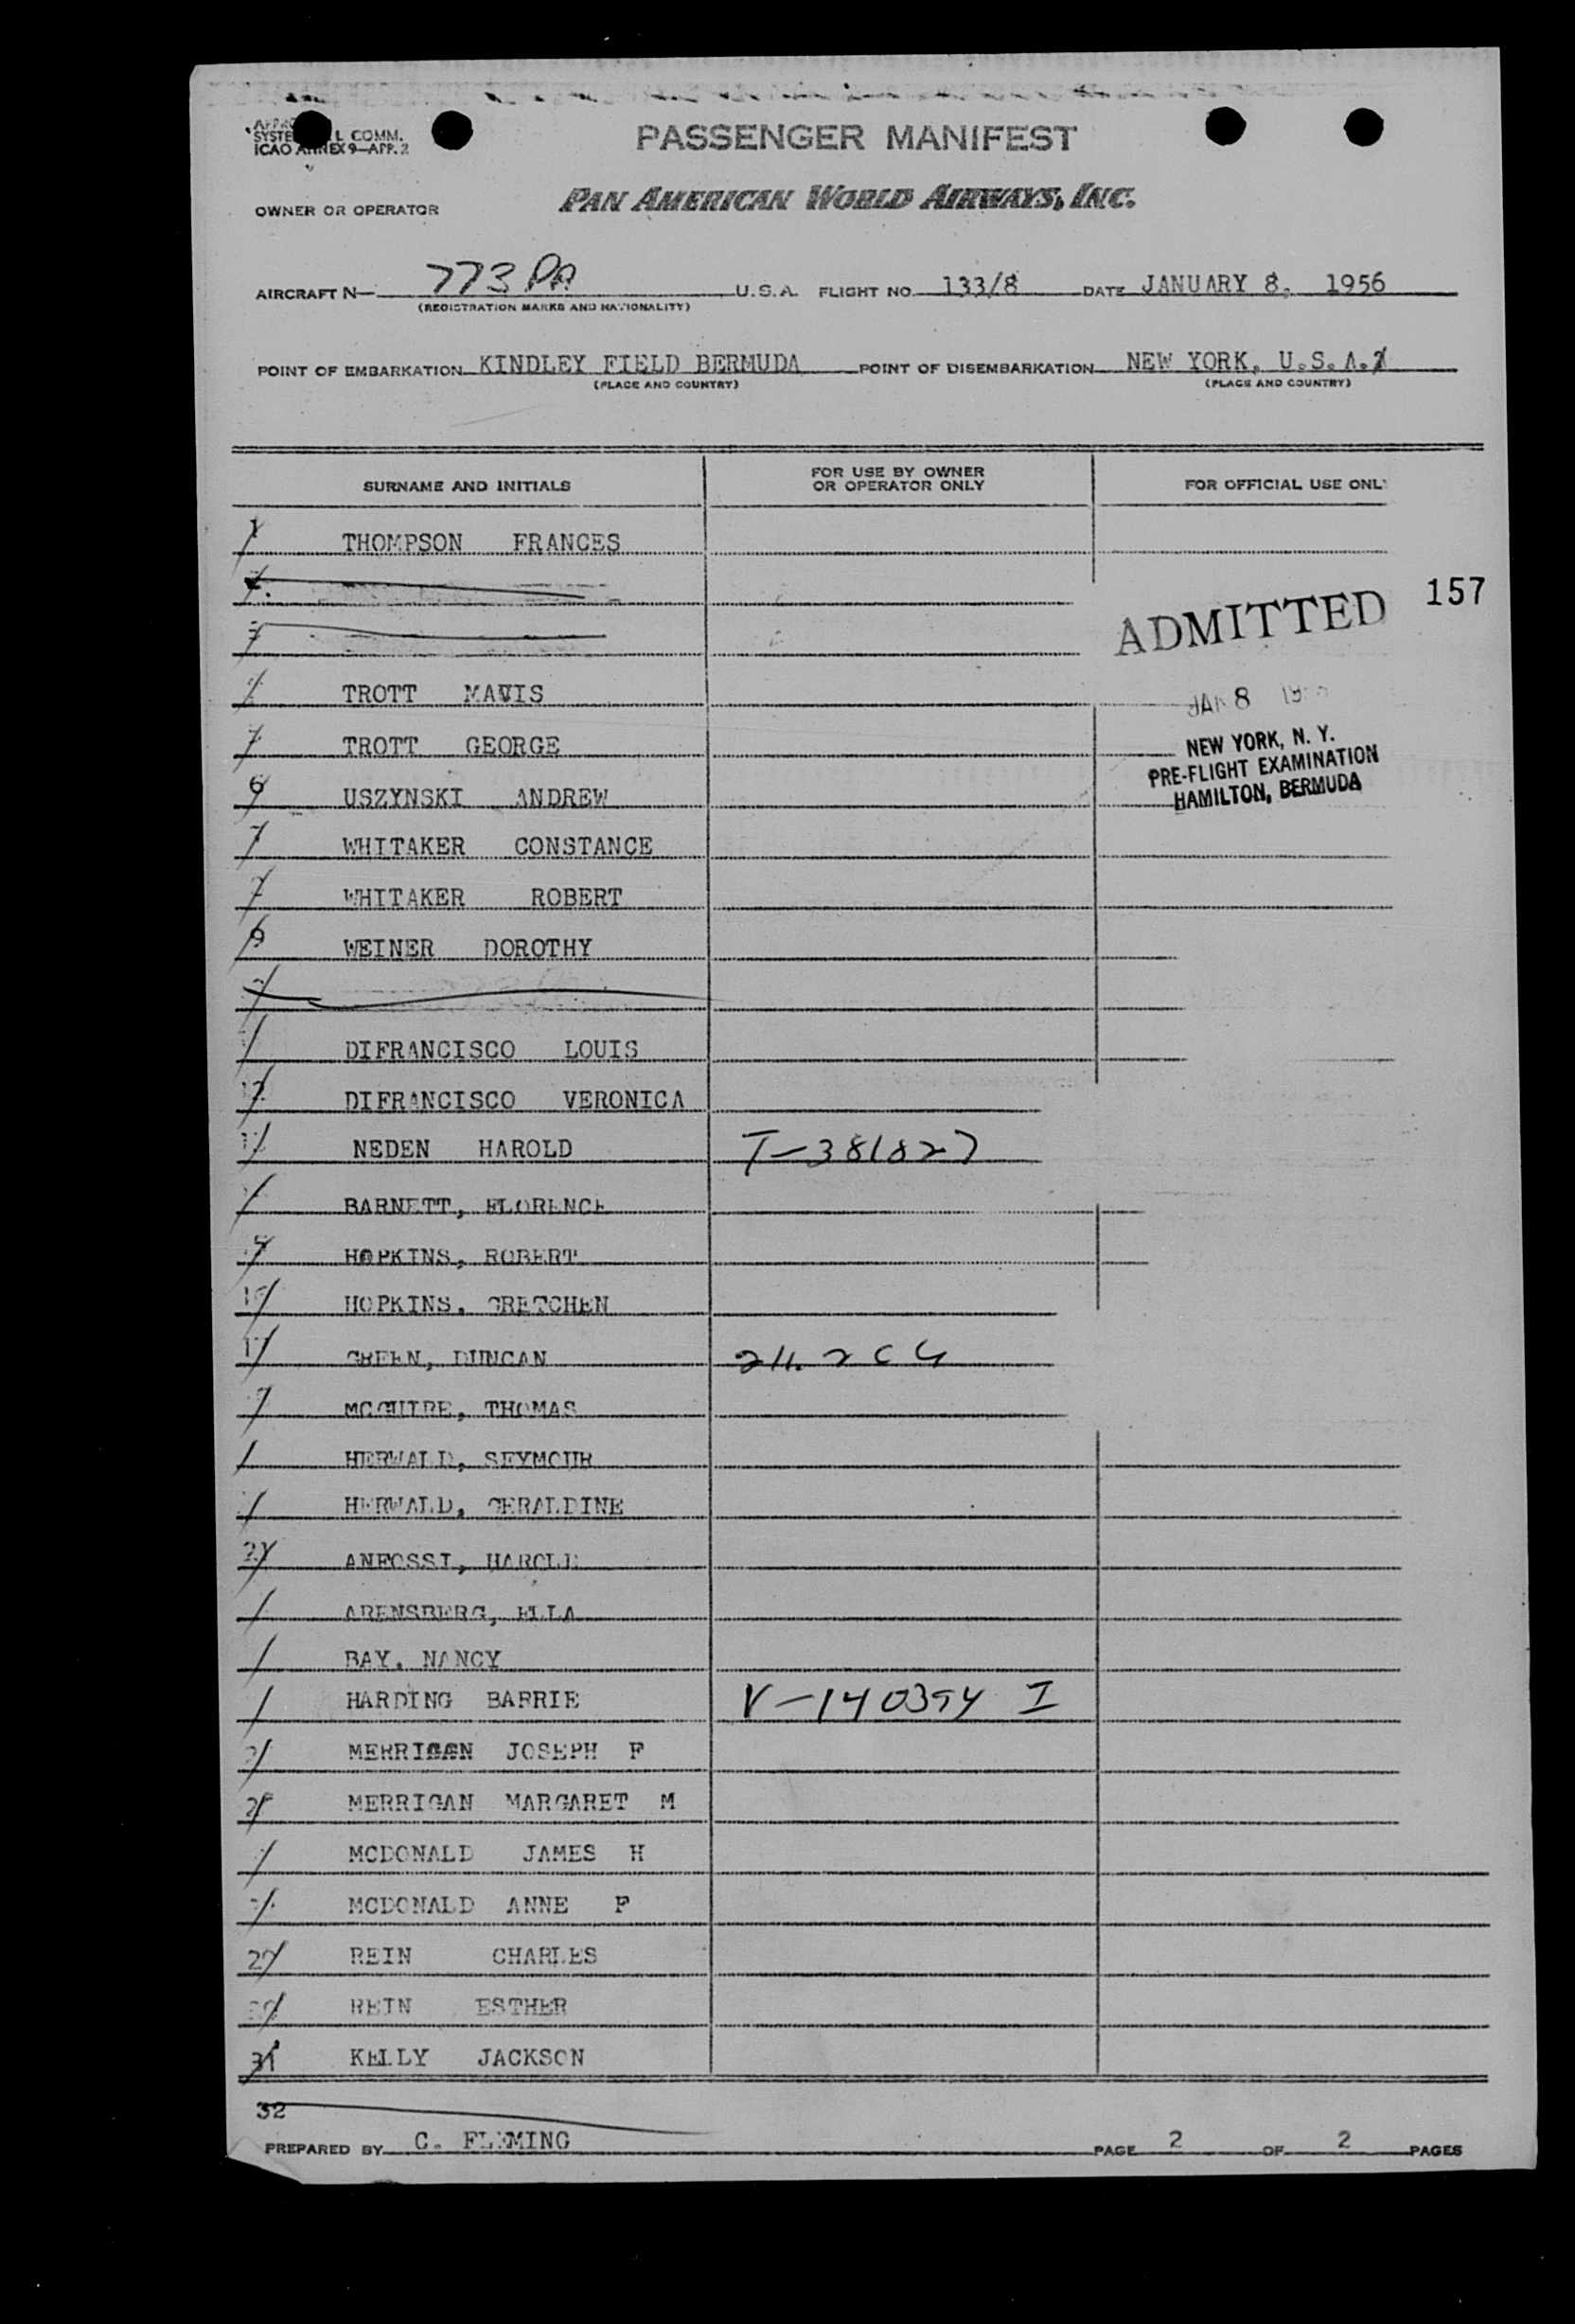 SYSTE L COMM.
ICAO ANNEX 9—APP. 2
PASSENGER MANIFEST
OWNER OR OPERATOR
PAN AMERICAN WORLD AIRWAYS, INC.
AIRCRAFT N— 773 PA U.S.A. FLIGHT NO. 133/8 DATE JANUARY 8, 1956
(REGISTRATION MARKS AND NATIONALITY)
POINT OF EMBARKATION KINDLEY FIELD BERMUDA POINT OF DISEMBARKATION NEW YORK, U.S.A.
(PLACE AND COUNTRY) (PLACE AND COUNTRY)
SURNAME AND INITIALS FOR USE BY OWNER OR OPERATOR ONLY FOR OFFICIAL USE ONL
1 THOMPSON FRANCES
157
ADMITTED
TROTT MAVIS
JAN 8
TROTT GEORGE
NEW YORK, N. Y.
PRE-FLIGHT EXAMINATION
HAMILTON, BERMUDA
6 USZYNSKI ANDREW
7 WHITAKER CONSTANCE
WHITAKER ROBERT
9 WEINER DOROTHY
DIFRANCISCO LOUIS
12 DIFRANCISCO VERONICA
NEDEN HAROLD T-381827
BARNETT, FLORENCE
HOPKINS, ROBERT
16 HOPKINS, GRETCHEN
17 GREEN, DUNCAN
MCGUIRE, THOMAS
HERWALD, SEYMOUR
HERWALD, GERALDINE
21 ANFOSSI, HAROLD
ARENSBERG, ELLA
BAY, NANCY
HARDING BARRIE V-140394 I
MERRIGAN JOSEPH F
26 MERRIGAN MARGARET M
MCDONALD JAMES H
MCDONALD ANNE F
29 REIN CHARLES
30 REIN ESTHER
31 KELLY JACKSON
32
PREPARED BY C. FLEMING PAGE 2 OF 2 PAGES